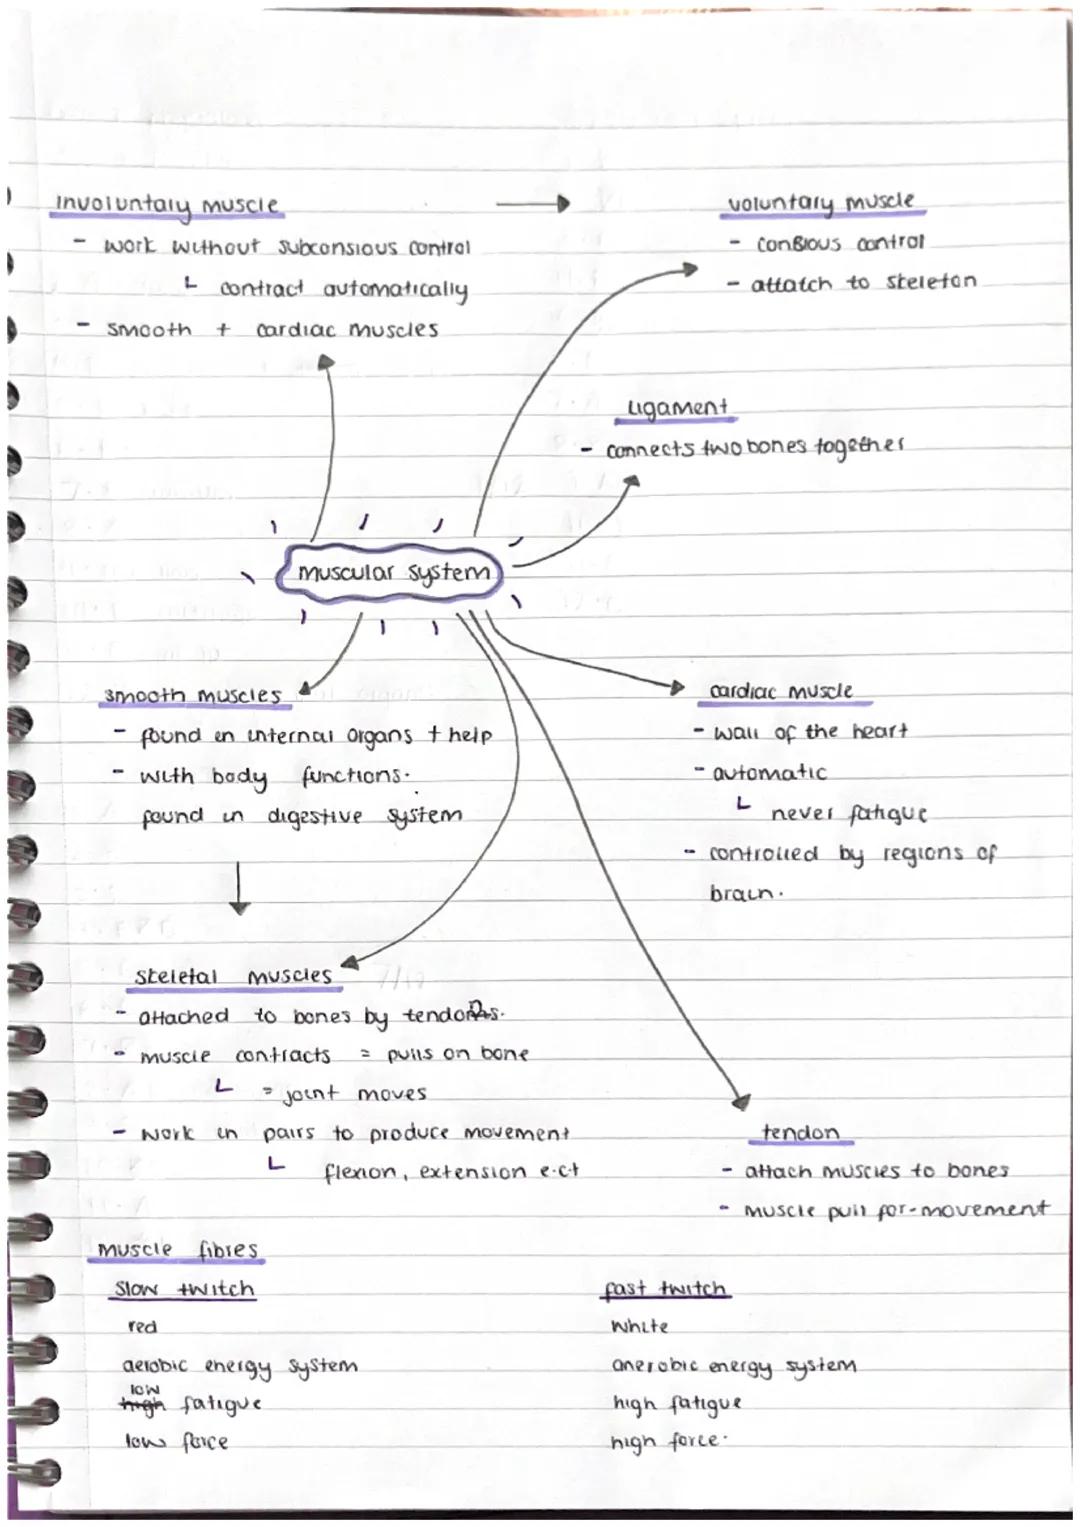 involuntary muscle
- work without subconsious control
└ contract automatically
- smooth + cardiac muscles
voluntary muscle
- consious control
- attatch to skeleton
ligament
- connects two bones together
muscular system
smooth muscles
- found in internal organs + help
- with body functions.
found in digestive system
cardiac muscle
- wall of the heart
- automatic
└ never fatigue
- controlled by regions of
brain.
skeletal muscles
- attached to bones by tendons.
- muscle contracts = pulls on bone
└ = joint moves
- work in pairs to produce movement
└ flexion, extension e.c.t
tendon
- attach muscles to bones
- muscle pull for-movement
muscle fibres
slow twitch
red
aerobic energy system
low
high fatigue
low force
fast twitch
white
anerobic energy system
high fatigue
high force.